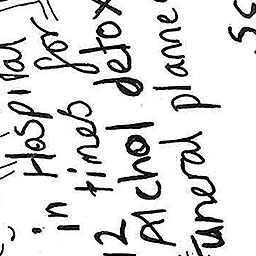 in Hospital
12 times for
Alchol detox
Funeral planne